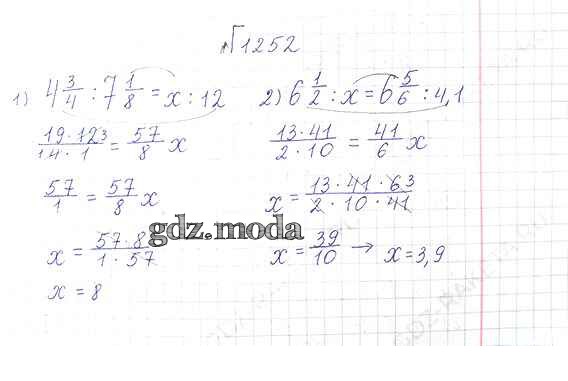 №1252
1) 4 3/4 : 7 1/8 = x : 12
19·12 3/14·1 = 57/8 x
57/1 = 57/8 x
x = 57·8/1·57
x = 8
2) 6 1/2 : x = 6 5/6 : 4,1
13·41/2·10 = 41/6 x
x = 13·41·6 3/2·10·41
x = 39/10 → x = 3,9
gdz.moda